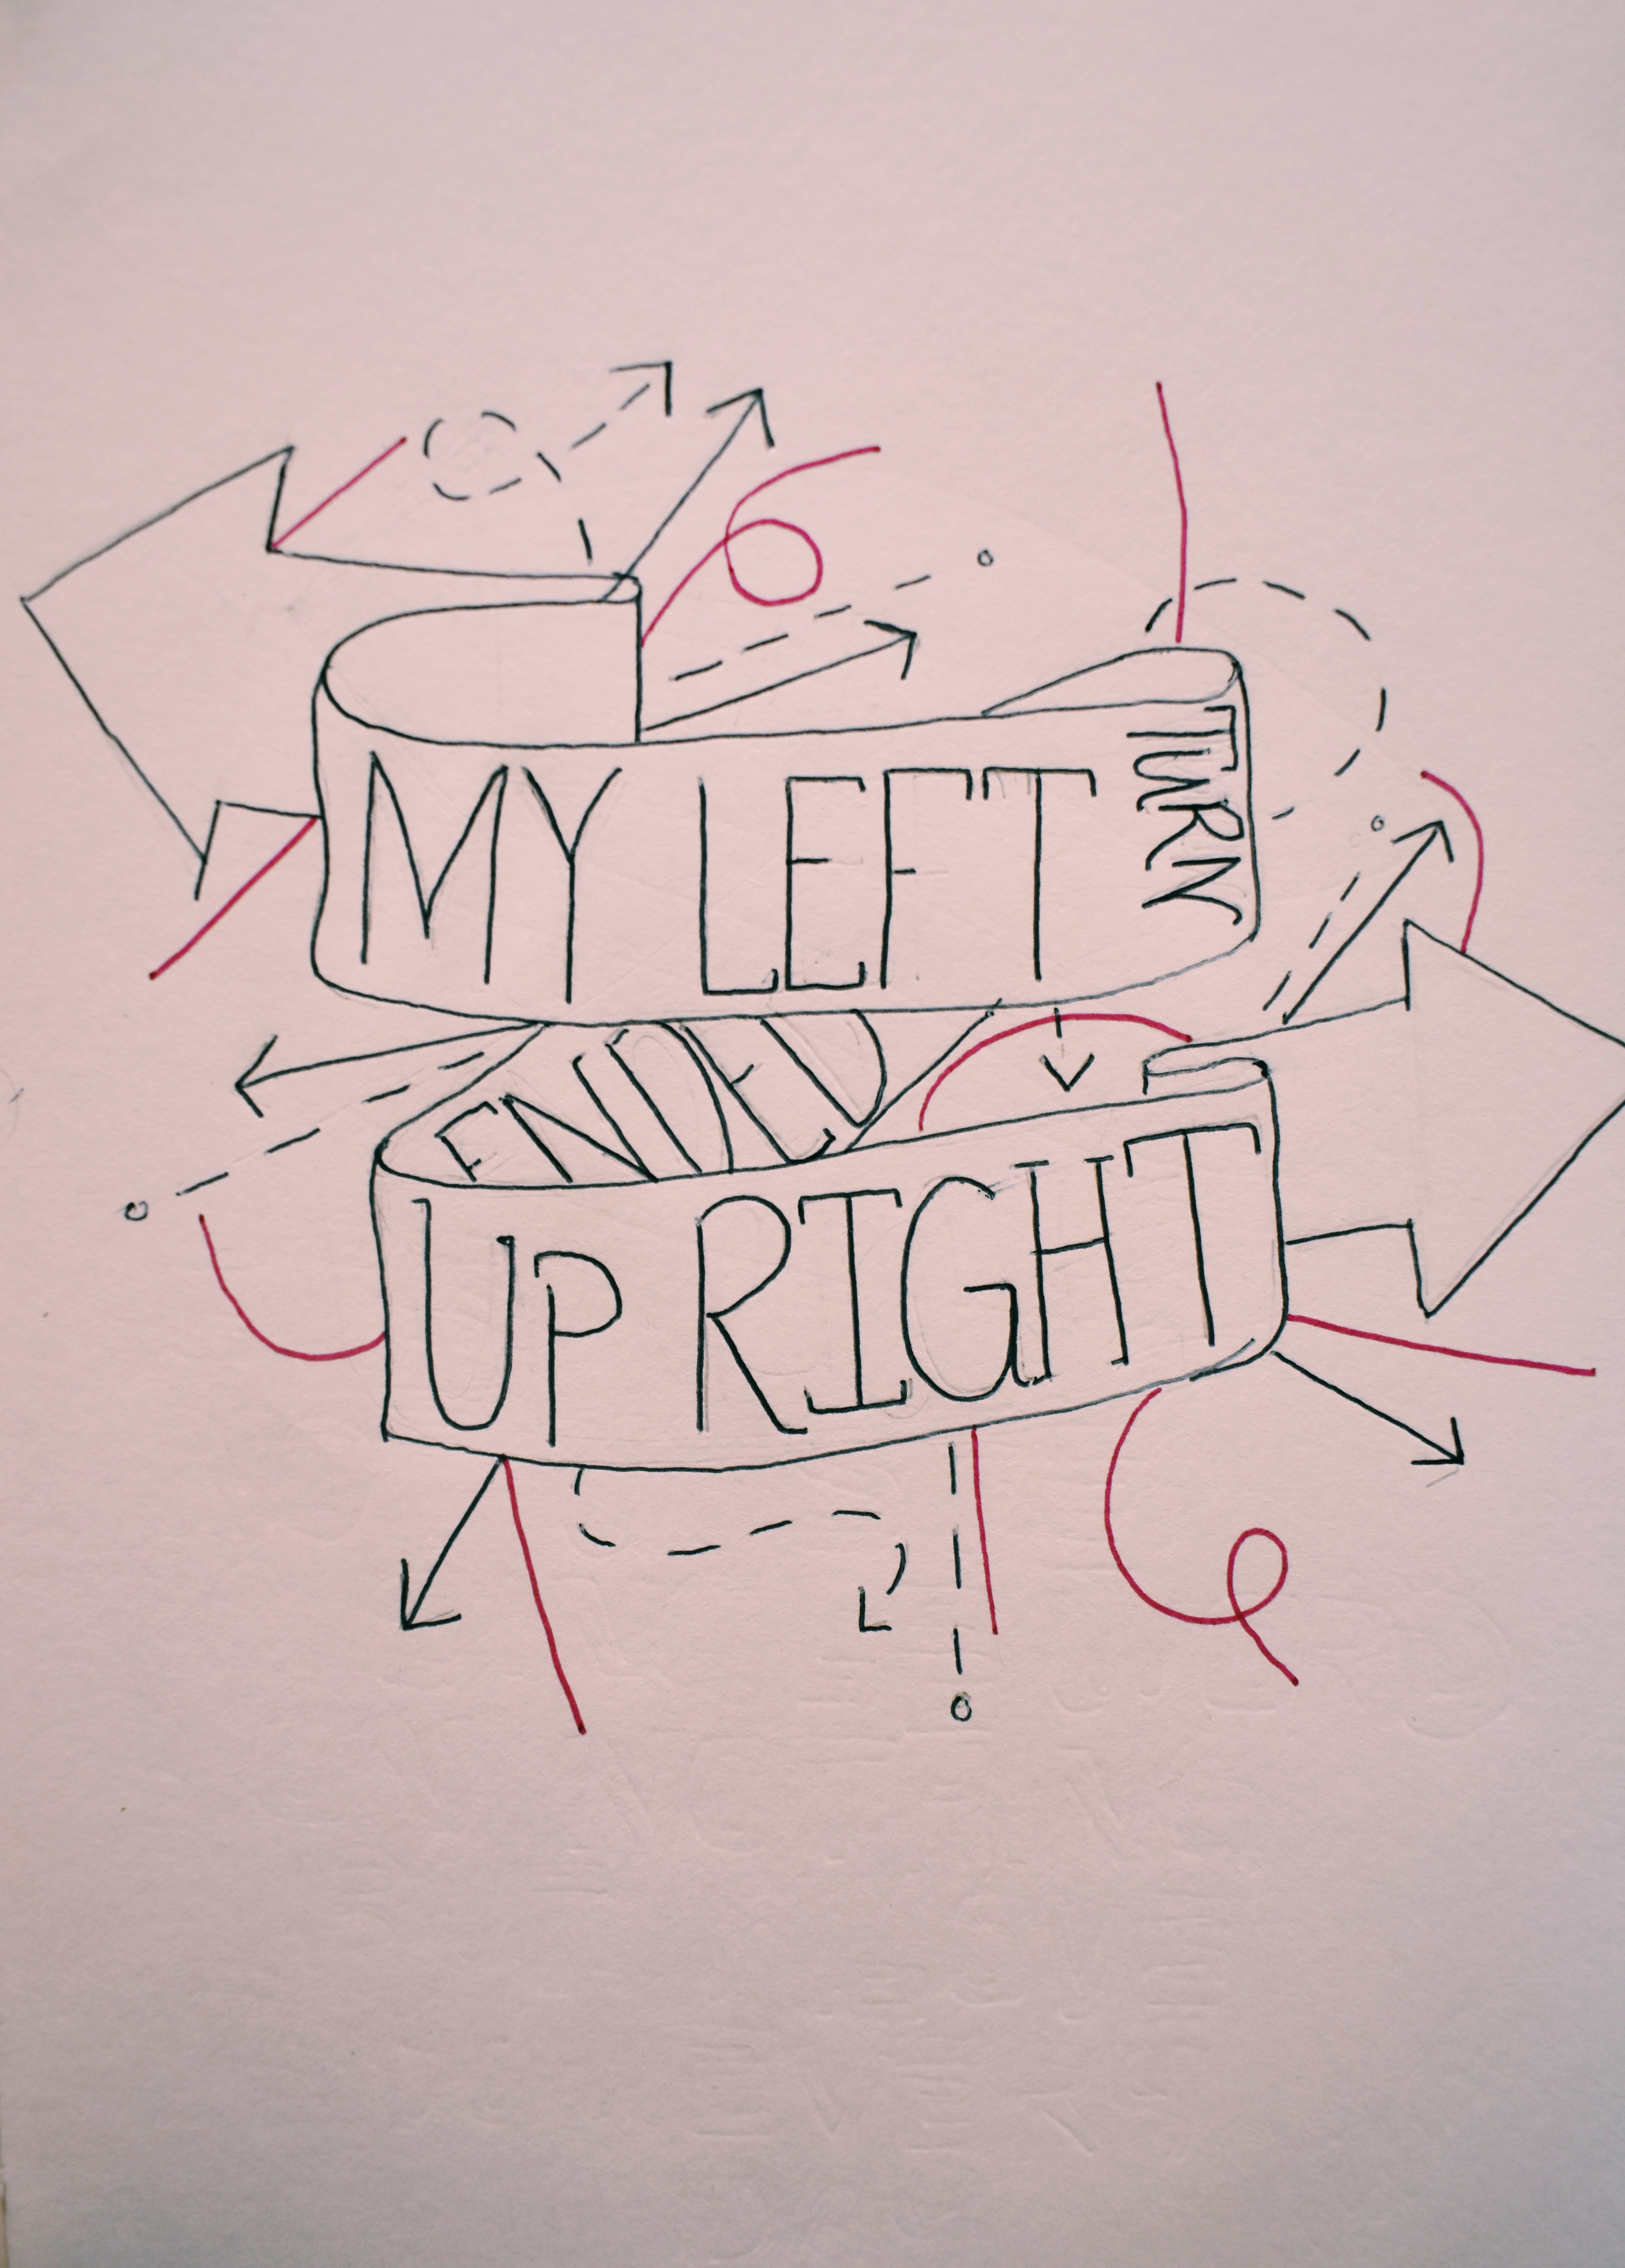 MY LEFT TURN
ENDED
UP RIGHT